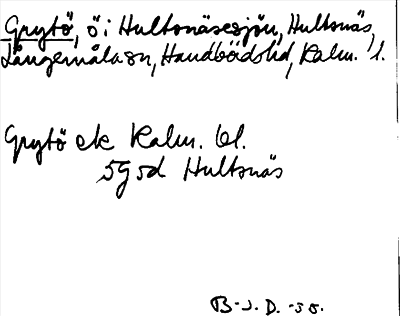 Grytö, ö i Hultsnäsesjön, Hultsnäs,
Långemåla sn, Handbörds hd, Kalm. l.
Grytö ek Kalm. bl.
5g 5d Hultsnäs
B-J.D. -35.